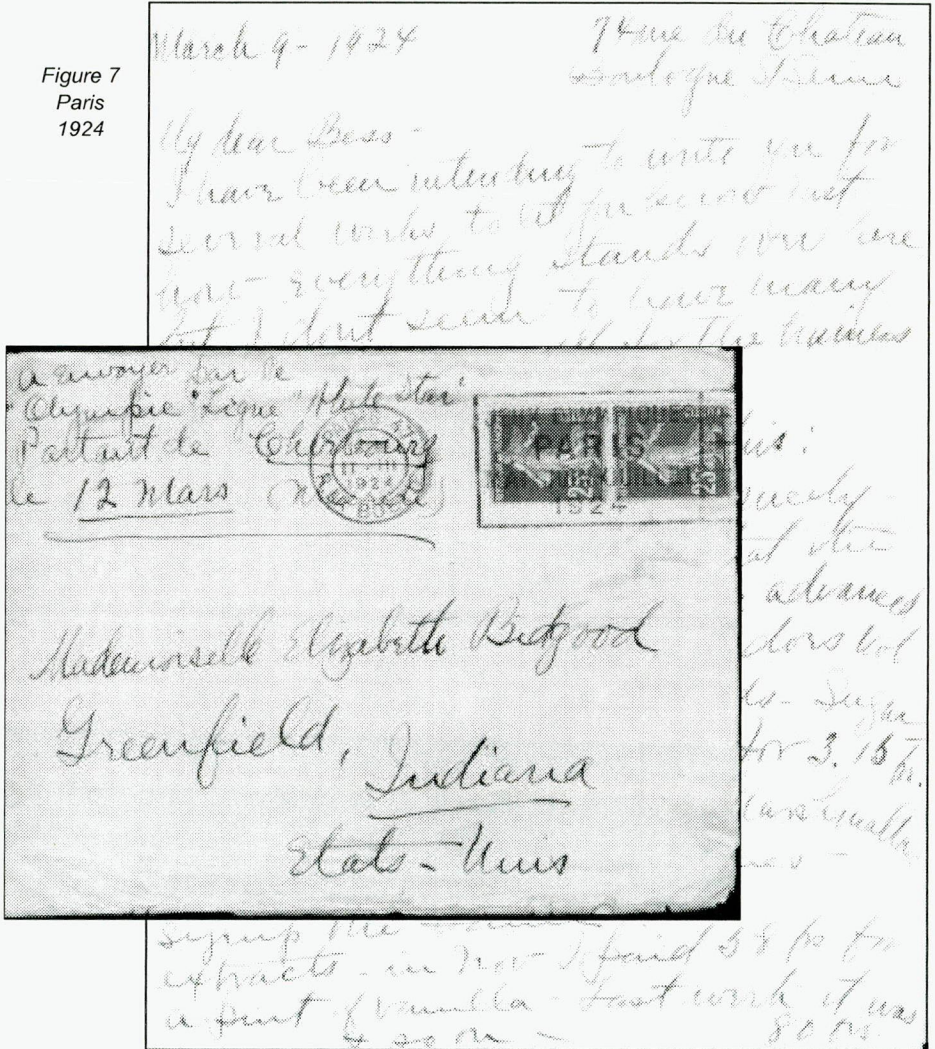 Figure 7
Paris
1924
March 9 - 1924
74 rue du Chateau
Boulogne s/ Seine
My dear Bess -
I have been intending to write you for
several weeks to let you know just
how everything stands over here
but I dont seem to have many
the business
this:
advances
does not
Sugar
for 3.15 fr.
syrup the
extracts - in Nov I paid 38 frs for
a pint of vanilla - Last week it was
& so on - 80 frs.
A envoyer par le
"Olympic" Ligne "White Star"
Partant de Cherbourg
le 12 Mars
11 - III
1924
JEUX OLYMPIQUES
PARIS
1924
25c
25c
Mademoiselle Elizabeth Bidgood
Greenfield,
Indiana
Etats-Unis